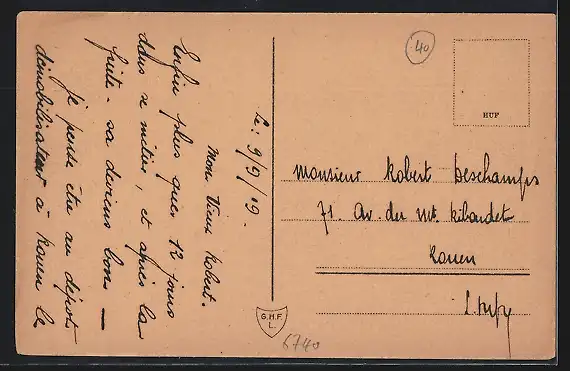 Le: 9/9/19.
Mon Vieux Robert.
Enfin plus que 12 jours
dans se métier, et après la
fuite - sa devient bon —
Je pense être au dépôt
démobilisateur à Rouen le
40
HUF
Monsieur Robert Deschamps
71. Av. du Mt.
Rouen
G.H.F.
L.
6740